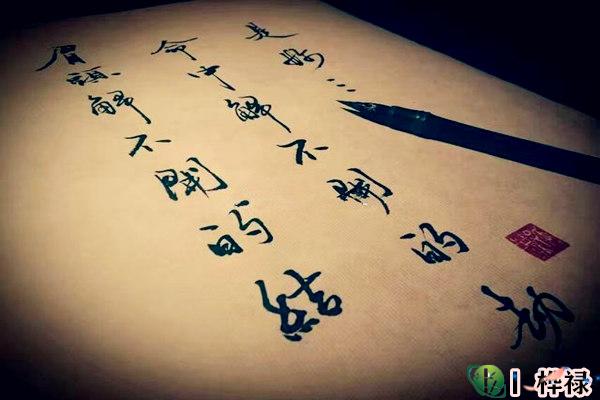 眉頭解不開的結
命中解不開的劫
是妳...
桦禄